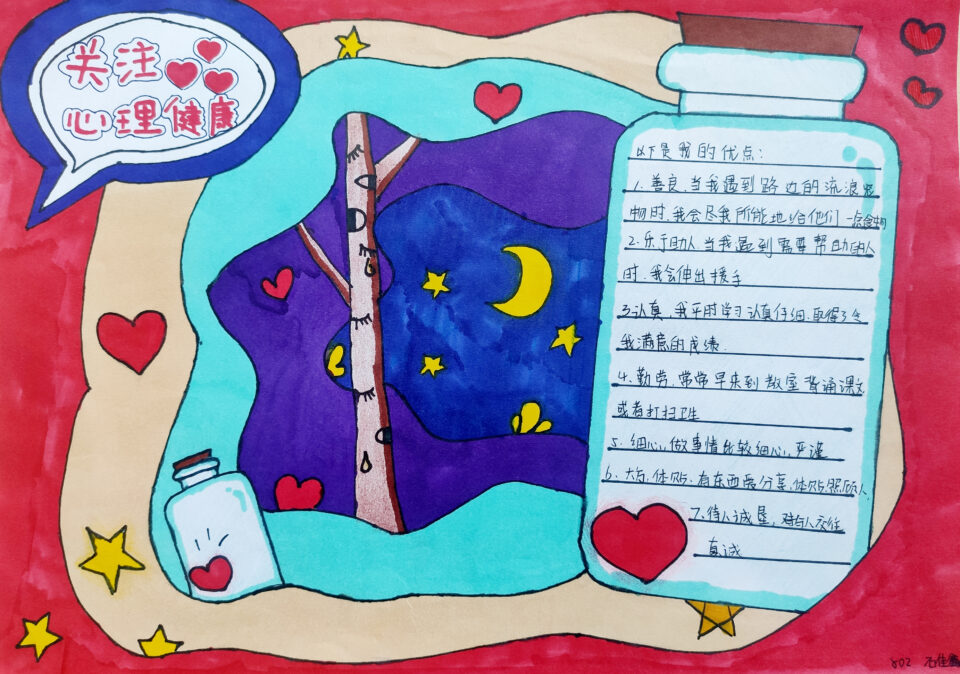 关注
心理健康
以下是我的优点：
1.善良,当我遇到路边的流浪动
物时,我会尽我所能地给他们一点食物
2.乐于助人,当我遇到需要帮助的人
时,我会伸出援手
3.认真,我平时学习认真仔细,取得了令
我满意的成绩.
4.勤劳,常常早来到教室背诵课文
或者打扫卫生
5.细心,做事情比较细心,严谨
6.大方,体贴,有东西要分享,体贴照顾人,
7.待人诚恳,对与人交往
真诚
802